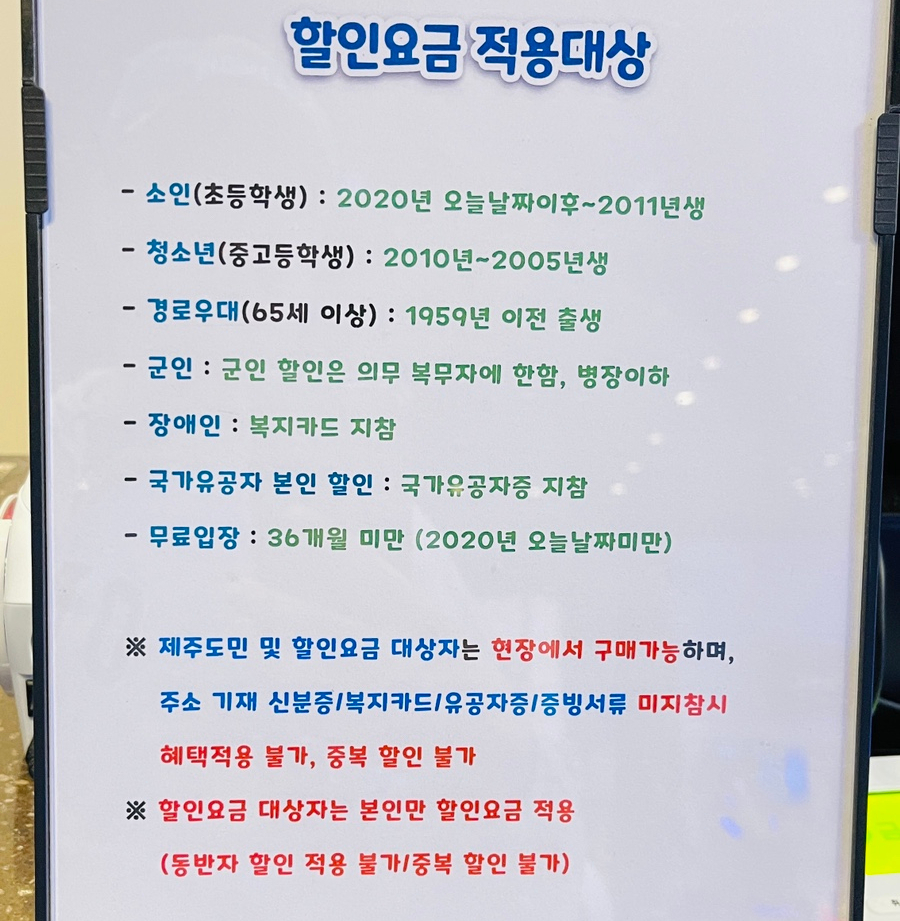 할인요금 적용대상
- 소인(초등학생) : 2020년 오늘날짜이후~2011년생
- 청소년(중고등학생) : 2010년~2005년생
- 경로우대(65세 이상) : 1959년 이전 출생
- 군인 : 군인 할인은 의무 복무자에 한함, 병장이하
- 장애인 : 복지카드 지참
- 국가유공자 본인 할인 : 국가유공자증 지참
- 무료입장 : 36개월 미만 (2020년 오늘날짜미만)
※ 제주도민 및 할인요금 대상자는 현장에서 구매가능하며,
주소 기재 신분증/복지카드/유공자증/증빙서류 미지참시
혜택적용 불가, 중복 할인 불가
※ 할인요금 대상자는 본인만 할인요금 적용
(동반자 할인 적용 불가/중복 할인 불가)